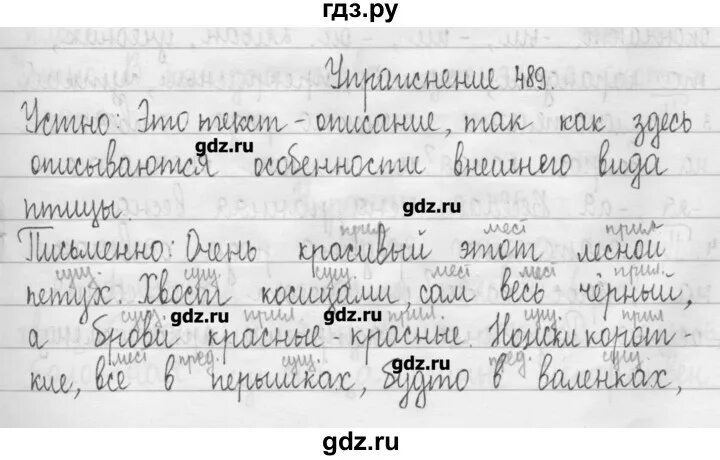 гдз.ру
Упражнение 489.
Устно: Это текст - описание, так как здесь
gdz.ru
описываются особенности внешнего вида
птицы.
gdz.ru
прил мест прил
Письменно: Очень красивый этот лесной
сущ. сущ. сущ. мест мест прил.
петух. Хвост косицами, сам весь чёрный,
gdz.ru
сущ. прил. прил. сущ. прил
а брови красные - красные. Ножки корот-
мест пред. сущ. пред. сущ.
кие, все в перышках, будто в валенках,
gdz.ru